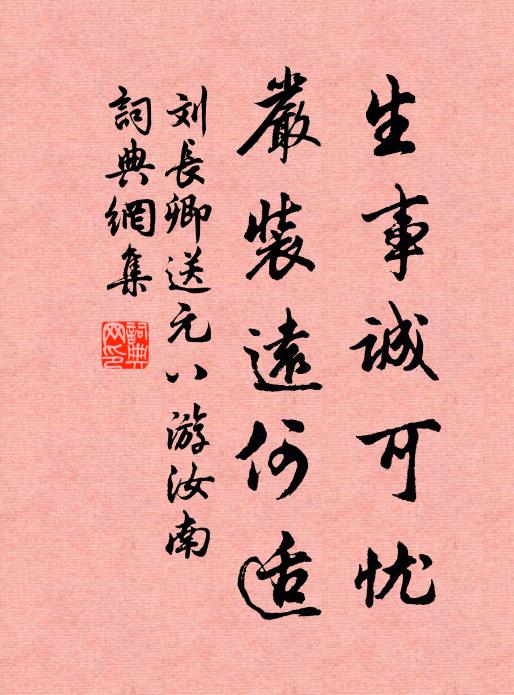 生事誠可忧
嚴裝遠何适
刘長卿送元八游汝南
詞典網集
詞典网印